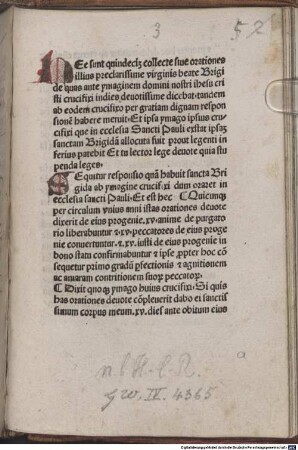 3
52
Hec sunt quindecim collecte siue orationes
illius preclarissime virginis beate Brigi
de quas ante ymaginem domini nostri ihesu cri
sti crucifixi indies deuotissime dicebat. tandem
ab eodem crucifixo per gratiam dignam respon
sionē habere meruit. Et ipsa ymago ipsius cru
cifixi que in ecclesia Sancti Pauli extat ipsaȝ
sanctam Brigidā allocuta fuit prout legenti in
ferius patebit Et tu lector lege deuote quia stu
penda leges.
Sequitur responsio quā habuit sancta Bri
gida ab ymagine crucifixi dom oraret in
ecclesia sancti Pauli. Et est hoc ⸿ Quicunqȝ
per circulum vnius anni istas orationes deuote
dixerit de eius progenie. xv. anime de purgato
rio liberabuntur ⁊ xv. peccatores de eius proge
nie conuertuntur. ⁊. xv. iusti de eius progenie in
bono statu confirmabuntur ⁊ ipse ꝓpter hoc cō
sequetur primo gradū ꝑfectionis ⁊ agnitionem
ac amaram contritionem suoꝝ peccatoꝝ.
⸿ Dixit quoqȝ ymago huius crucifixi. Si quis
has orationes deuote cōpleuerit dabo ei sanctis
simum corpus meum. xv. dies ante obitum eius
a
GW. IV. 4365